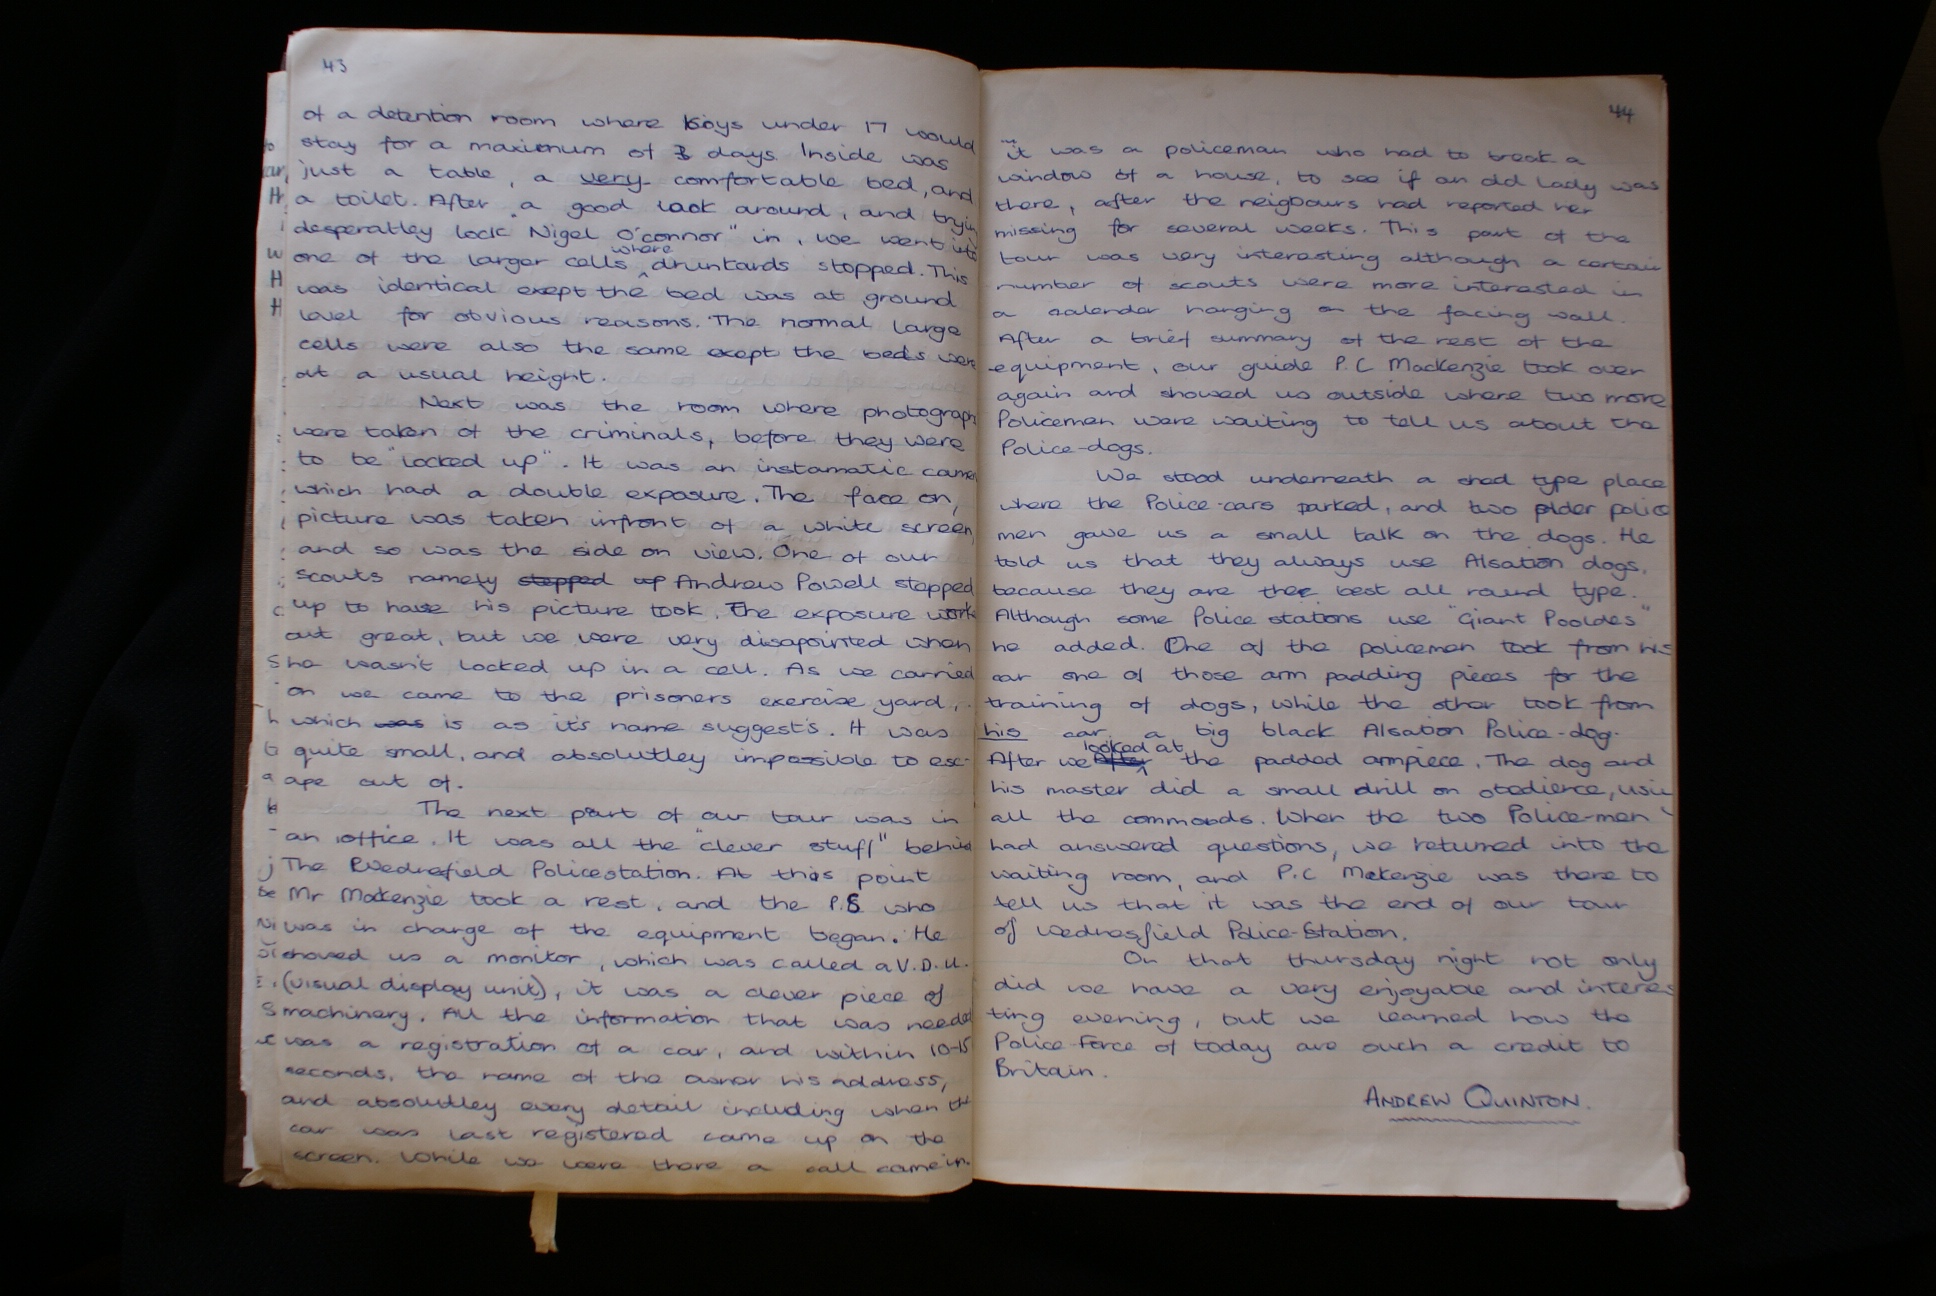 43
of a detention room where boys under 17 would
stay for a maximum of 3 days. Inside was
just a table, a very comfortable bed, and
a toilet. After a good look around, and tryin
desperatley lock "Nigel O'connor" in, we went into
one of the larger cells where drunkards stopped. This
was identical exept the bed was at ground
level for obvious reasons. The normal large
cells were also the same exept the beds were
at a usual height.
Next was the room where photograph
were taken of the criminals, before they were
to be "locked up". It was an instamatic camer
which had a double exposure. The face on,
picture was taken infront of a white screen,
and so was the side on view. One of our
scouts namely stepped up Andrew Powell stepped
up to have his picture took. The exposure work
out great, but we were very disapointed when
he wasn't locked up in a cell. As we carried
on we came to the prisoners exercise yard,
which was is as it's name suggest's. It was
quite small, and absolutley impossible to esc-
ape out of.
The next part of our tour was in
an office. It was all the "clever stuff" behind
The Wednesfield Policestation. At this point
Mr Mackenzie took a rest, and the P.S who
was in charge of the equipment began. He
showed us a monitor, which was called a V.D.U.
(visual display unit), it was a clever piece of
machinery. All the information that was needed
was a registration of a car, and within 10-15
seconds, the name of the owner his address,
and absolutley every detail including when the
car was last registered came up on the
screen. While we were there a call came in.
44
it was a policeman who had to break a
window of a house, to see if an old lady was
there, after the neigbours had reported her
missing for several weeks. This part of the
tour was very interesting although a certain
number of scouts were more interested in
a calender hanging on the facing wall.
After a brief summary of the rest of the
equipment, our guide P.C Mackenzie took over
again and showed us outside where two more
Policemen were waiting to tell us about the
Police-dogs.
We stood underneath a shed type place
where the Police-cars parked, and two older police
men gave us a small talk on the dogs. He
told us that they always use Alsation dogs,
because they are the best all round type.
Although some Police stations use "Giant Pooldes"
he added. One of the policemen took from his
car one of those arm padding pieces for the
training of dogs, while the other took from
his car, a big black Alsation Police-dog.
After we After looked at the padded armpiece. The dog and
his master did a small drill on obedience, usin
all the commands. When the two Police-men
had answered questions, we returned into the
waiting room, and P.C Mckenzie was there to
tell us that it was the end of our tour
of Wednesfield Police-Station.
On that thursday night not only
did we have a very enjoyable and interes
ting evening, but we learned how the
Police-Force of today are such a credit to
Britain.
ANDREW QUINTON.